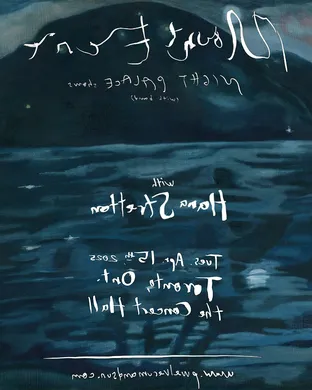 Mount Eerie
NIGHT PALACE shows
(with band)
with
Hana Stretton
Tues. Apr. 15th 2025
Toronto, Ont.
the Concert Hall
www.pwelverumandsun.com